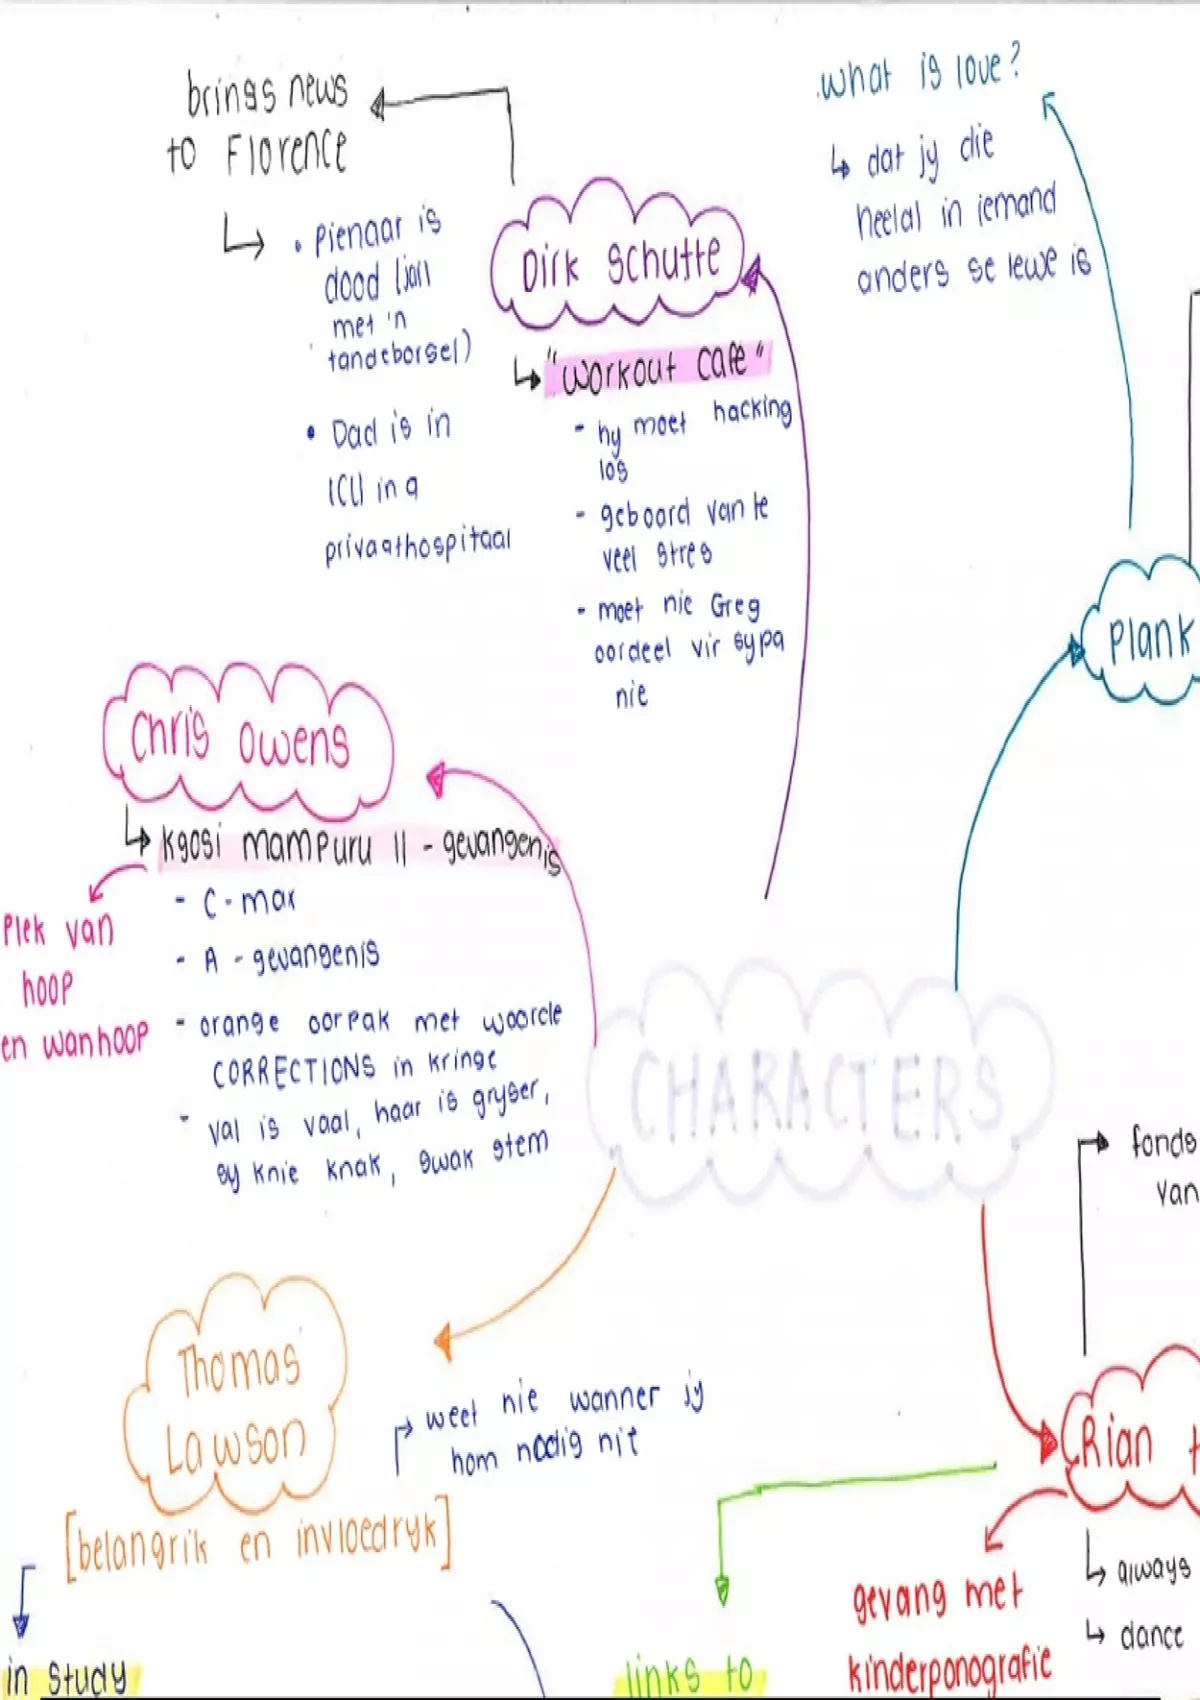 brings news
to Florence
• Pienaar is
dood (jan
met 'n
tandeborsel)
• Dad is in
ICU in a
privaathospitaal
Dirk Schutte
"workout cafe"
- hy moet hacking
los
- geboord van te
veel stres
- moet nie Greg
oordeel vir sypa
nie
what is love?
dat jy die
heelal in iemand
anders se lewe is
Plank
Chris Owens
Kgosi mampuru II - gevangenis
Plek van
hoop
en wanhoop
- C-max
- A - gevangenis
- orange oorpak met woorde
CORRECTIONS in kringe
- Val is vaal, haar is gryser,
sy knie knak, swak stem
CHARACTERS
Thomas
Lawson
[belangrik en invloedryk]
weet nie wanner jy
hom nodig nie
in study
links to
fonds
van
Rian
gevang met
kinderponografie
always
dance